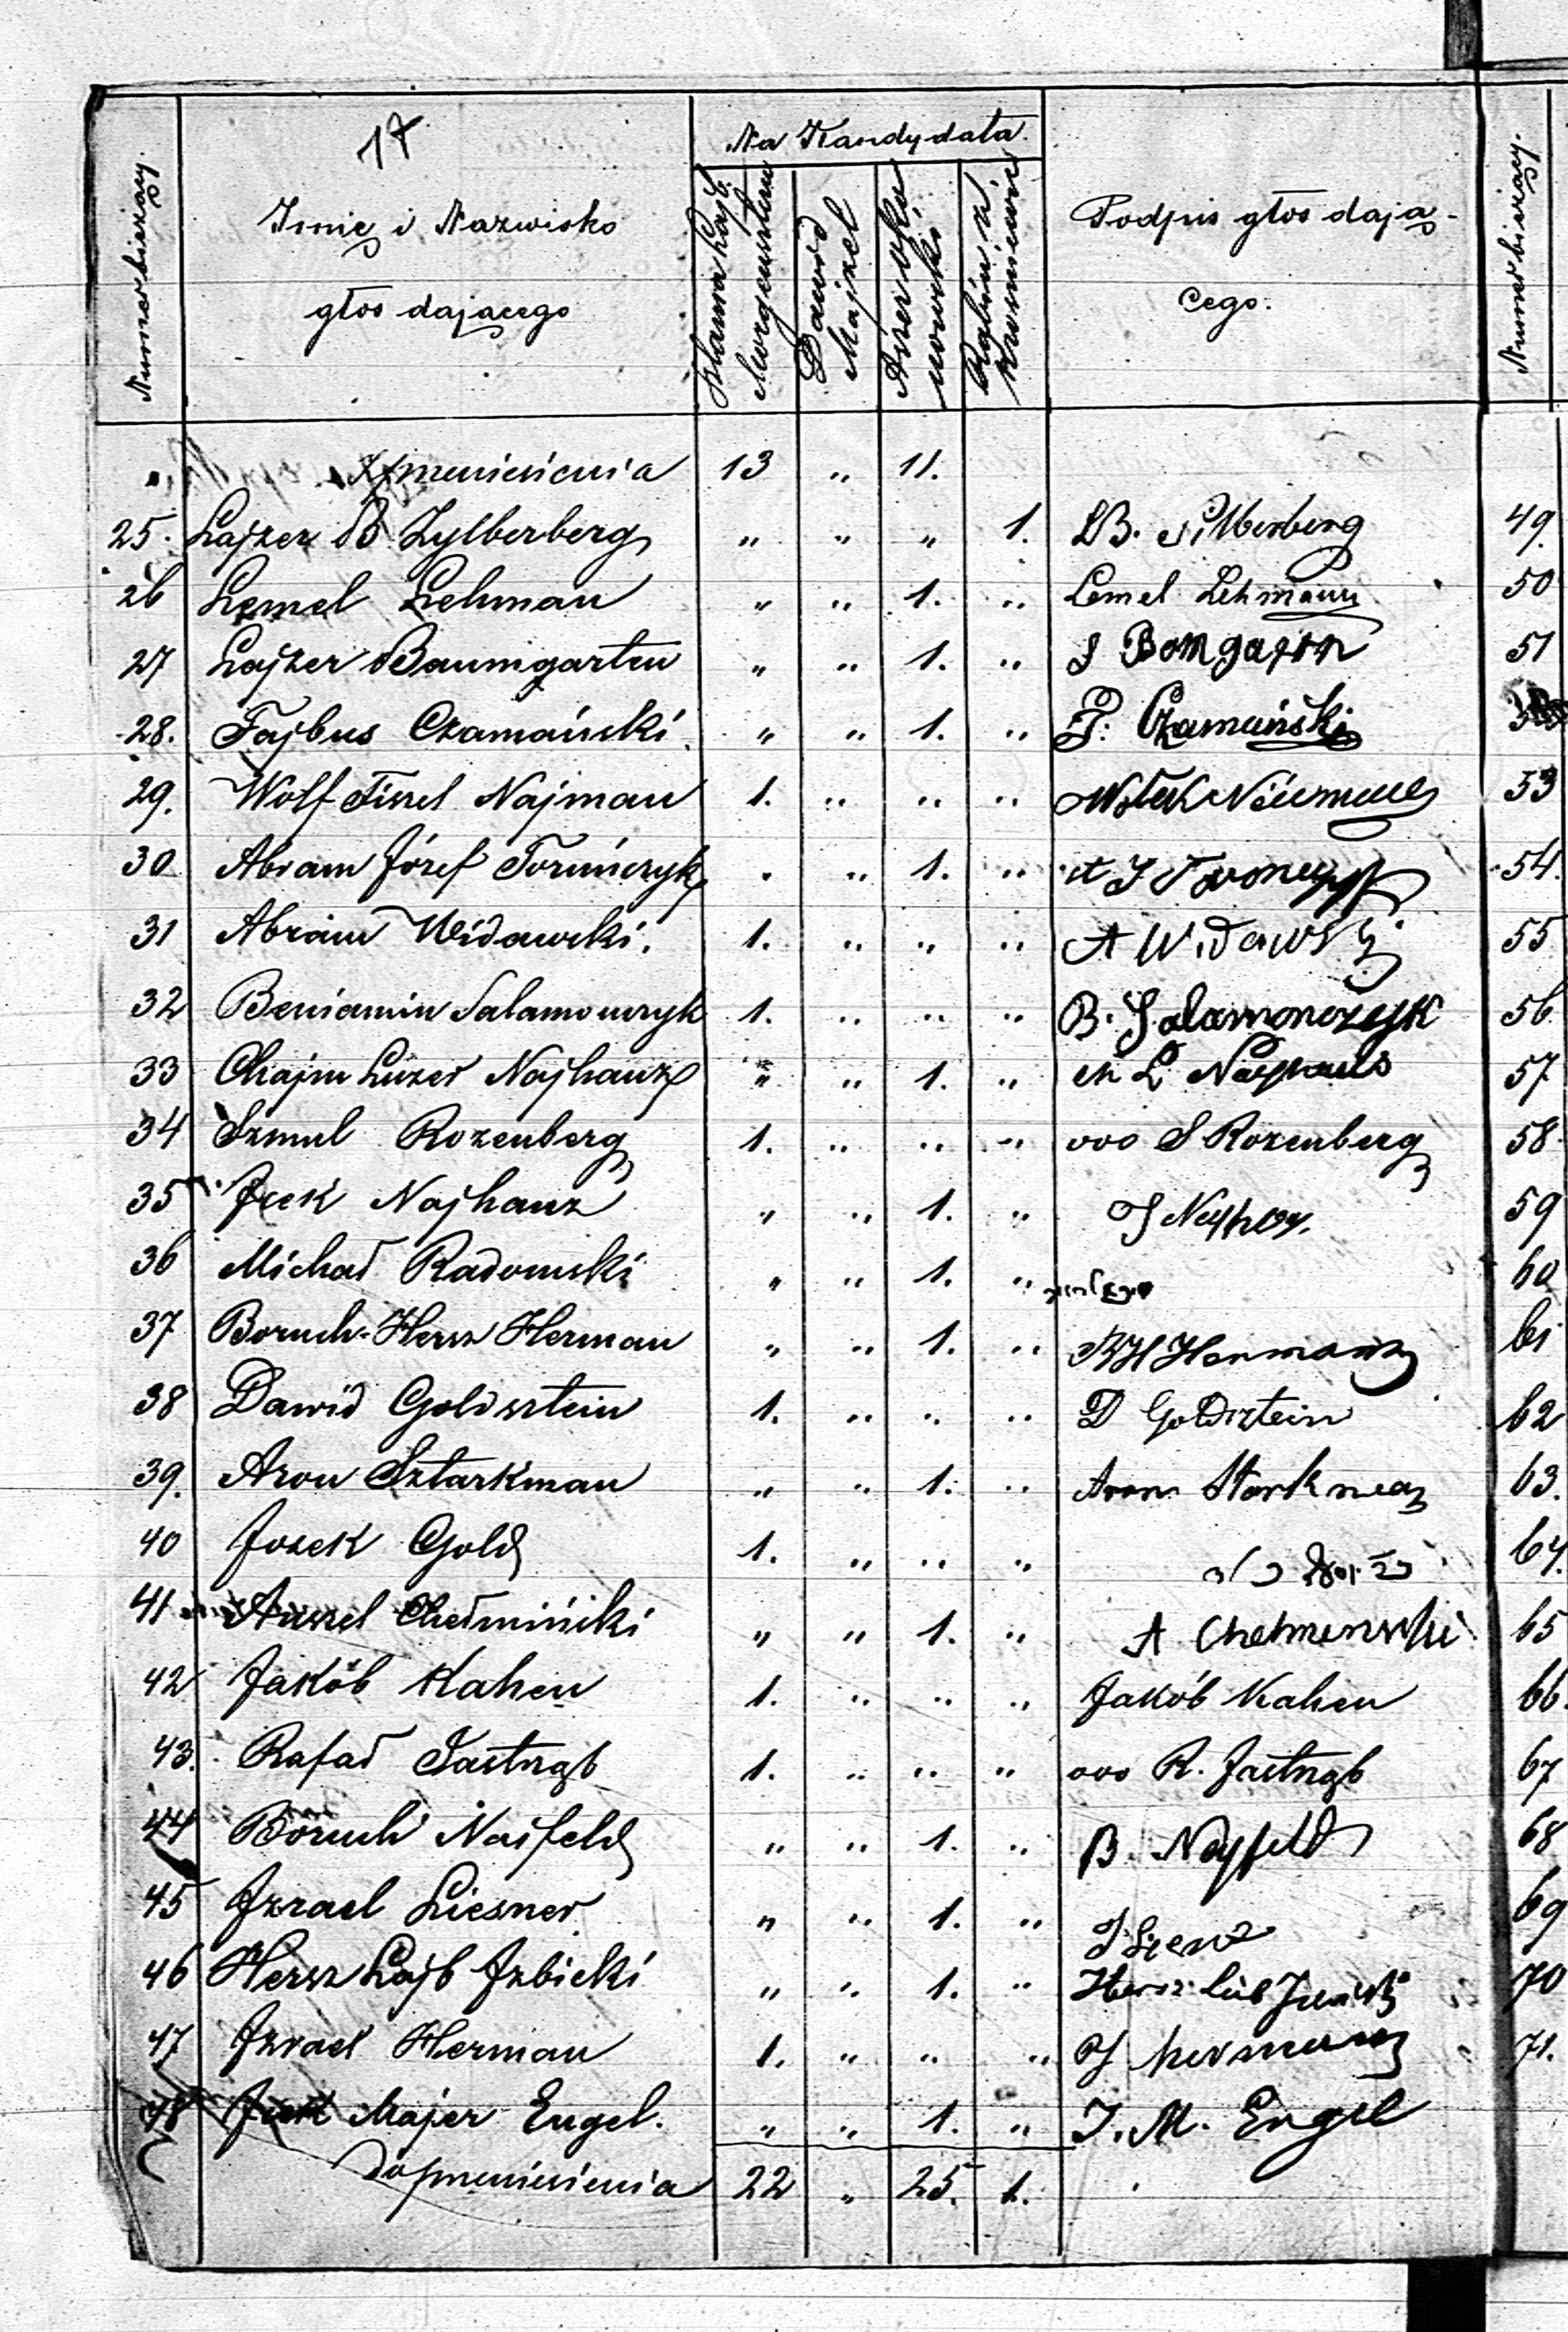 17
Numer bieżący.
Imię i Nazwisko
głos dającego
Na Kandydata.
Morgenstern
Dawid
Majzel
Podpis głos dają-
cego.
Numer bieżący.
Z przeniesienia 13 " 11.
25. Lajzer B Zylberberg " " " 1. LB. Silberberg 49.
26 Lemel Lehman " " 1. " Lemel Lehmann 50
27 Lajzer Baumgarten " " 1. " 51
28. Fajbus Czamański " " 1. " F. Czamański
29. Wolf Fiszel Najman 1. " " " 53
30 Abram Józef Toruńczyk " " 1. " 54.
31 Abram Widawski. 1. " " " A Widawski 55
32 Beniamin Salamonczyk 1. " " " B. Salamonczyk 56
33 Chajm Luzer Najhauz " " 1. " Ch L Nayhaus 57
34 Szmul Rozenberg 1. " " " ooo S Rozenberg 58.
35 Icek Najhauz " " 1. " 59
36 Michał Radomski " " 1. " 60
37 Boruch-Hersz Herman " " 1. " BH Herman 61
38 Dawid Goldsztein 1. " " " D Goldsztein 62
39. Aron Sztarkman " " 1. " Aron Starkman 63.
40 Josek Gold 1. " " " 64.
41 Anszel Chełmiński " " 1. " A Chelmenski 65
42 Jakób Kahen 1. " " " Jakób Kahen 66.
43. Rafał Jastrząb 1. " " " ooo R. Jastrząb 67
44 Boruch Najfeld " " 1. " B. Nayfeld 68
45 Izrael Liesner " " 1. " 69
46 Hersz Lajb Izbicki " " 1. " 70
47 Izrael Herman 1. " " " I Herman 71.
48 Icek Majer Engel. " " 1. " I. M. Engel
Do przeniesienia 22 " 25. 1.